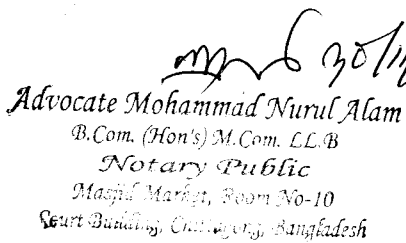 30/11
Advocate Mohammad Nurul Alam
B.Com. (Hon's) M.Com. LL.B
Notary Public
Masjid Market, Room No-10
Court Building, Chittagong, Bangladesh